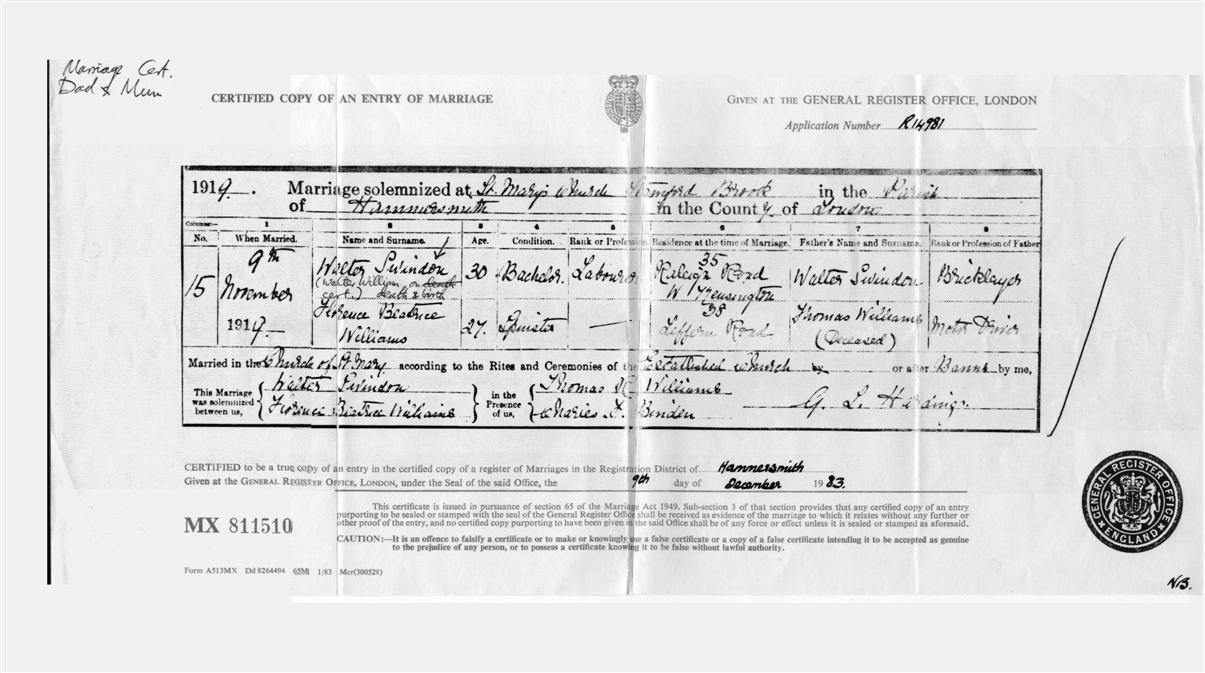 Marriage Cert.
Dad & Mum
CERTIFIED COPY OF AN ENTRY OF MARRIAGE
GIVEN AT THE GENERAL REGISTER OFFICE, LONDON
Application Number R14981
1919. Marriage solemnized at St. Mary's Church Stamford Brook in the Parish
of Hammersmith in the County of London
Columns:— 1 2 3 4 5 6 7 8
No. When Married. Name and Surname. Age. Condition. Rank or Profession. Residence at the time of Marriage. Father's Name and Surname. Rank or Profession of Father
15 9th November 1919 Walter Swindon 30 Bachelor Labourer 35 Raleigh Road W Kensington Walter Swindon Bricklayer
(Walter William on death cert.) death & birth
Florence Beatrice Williams 27. Spinster — 38 Road Thomas Williams (Deceased) Motor Driver
Married in the Church of St Mary according to the Rites and Ceremonies of the Established Church by or after Banns by me,
This Marriage was solemnized between us, Walter Swindon Florence Beatrice Williams in the Presence of us, Thomas Williams Charles Binden G. L.
CERTIFIED to be a true copy of an entry in the certified copy of a register of Marriages in the Registration District of Hammersmith
Given at the GENERAL REGISTER OFFICE, LONDON, under the Seal of the said Office, the 9th day of December 1983.
MX 811510
This certificate is issued in pursuance of section 65 of the Marriage Act 1949. Sub-section 3 of that section provides that any certified copy of an entry
purporting to be sealed or stamped with the seal of the General Register Office shall be received as evidence of the marriage to which it relates without any further or
other proof of the entry, and no certified copy purporting to have been given in the said Office shall be of any force or effect unless it is sealed or stamped as aforesaid.
CAUTION:—It is an offence to falsify a certificate or to make or knowingly use a false certificate or a copy of a false certificate intending it to be accepted as genuine
to the prejudice of any person, or to possess a certificate knowing it to be false without lawful authority.
GENERAL REGISTER OFFICE
ENGLAND
Form A513MX Dd 8264494 65M 1/83 Mcr(300528)
NB.